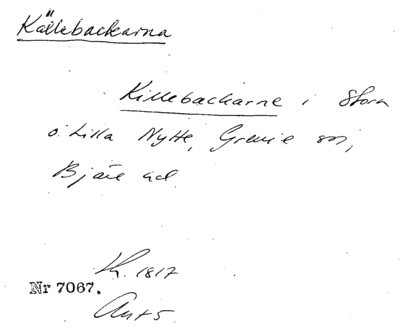 Källebackarna
Killebackarne i Stora
o. Lilla Nytte, Grevie sn,
Bjäre hd.
Nr 7067.